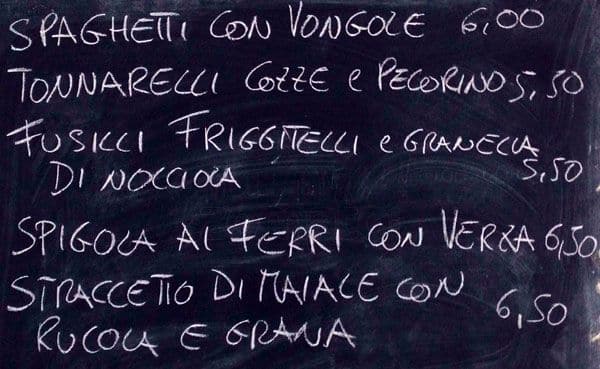 SPAGHETTI CON VONGOLE 6,00
TONNARELLI COZZE e PECORINO 5,50
FUSILLI FRIGGITELLI e GRANELLA
DI NOCCIOLA 5,50
SPIGOLA AI FERRI CON VERZA 6,50
STRACCETTO DI MAIALE CON
RUCOLA E GRANA 6,50